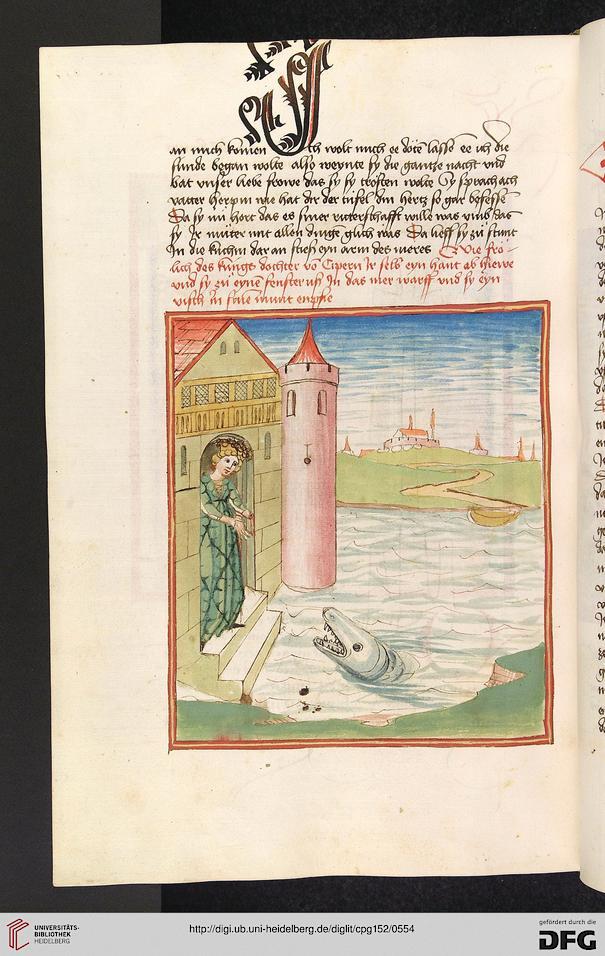 an mich komen Ich wolt mich ee dötē lassē ee ich die
sunde began wolte also weynte sy die gantze nacht vnd
bat vnser liebe frowe das sy sy trösten wolte Sy sprach ach
vatter herpin wie hat dir der tüfel din hertz so gar besessē
Da sy nü hort das es siner ritterschafft wille was vmb das
sy Ir müter mit allen dingē glich was Da lieff sy zü stunt
In die kuchin dar an stieß eyn arm des meres Wie frö-
lich des künigs dochter vō Cipern Ir selb eyn hant ab
vnd sy zu eynē fenster uß In das mer warff vnd sy eyn
visch in sine munt enpfie
UNIVERSITÄTS-
BIBLIOTHEK
HEIDELBERG
http://digi.ub.uni-heidelberg.de/diglit/cpg152/0554
gefördert durch die
DFG